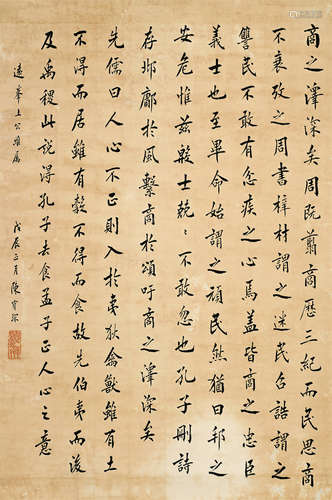 商之澤深矣周既翦商歷三紀而民思商
不衰攷之周書梓材謂之迷民召誥謂之
讐民不敢有忿疾之心焉蓋皆商之忠臣
義士也至畢命始謂之頑民然猶曰邦之
安危惟茲殷士兢〻不敢忽也孔子刪詩
存邶鄘於風繫商於頌吁商之澤深矣
先儒曰人心不正則入於夷狄禽獸雖有土
不得而居雖有穀不得而食故先伯夷而後
及禹稷此說得孔子去食孟子正人心之意
遠峯上公雅屬
戊辰 月陳寶琛